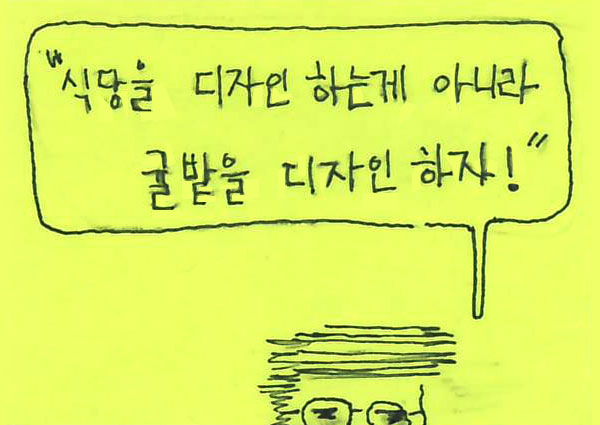 "식당을 디자인 하는게 아니라
굴밭을 디자인 하자!"